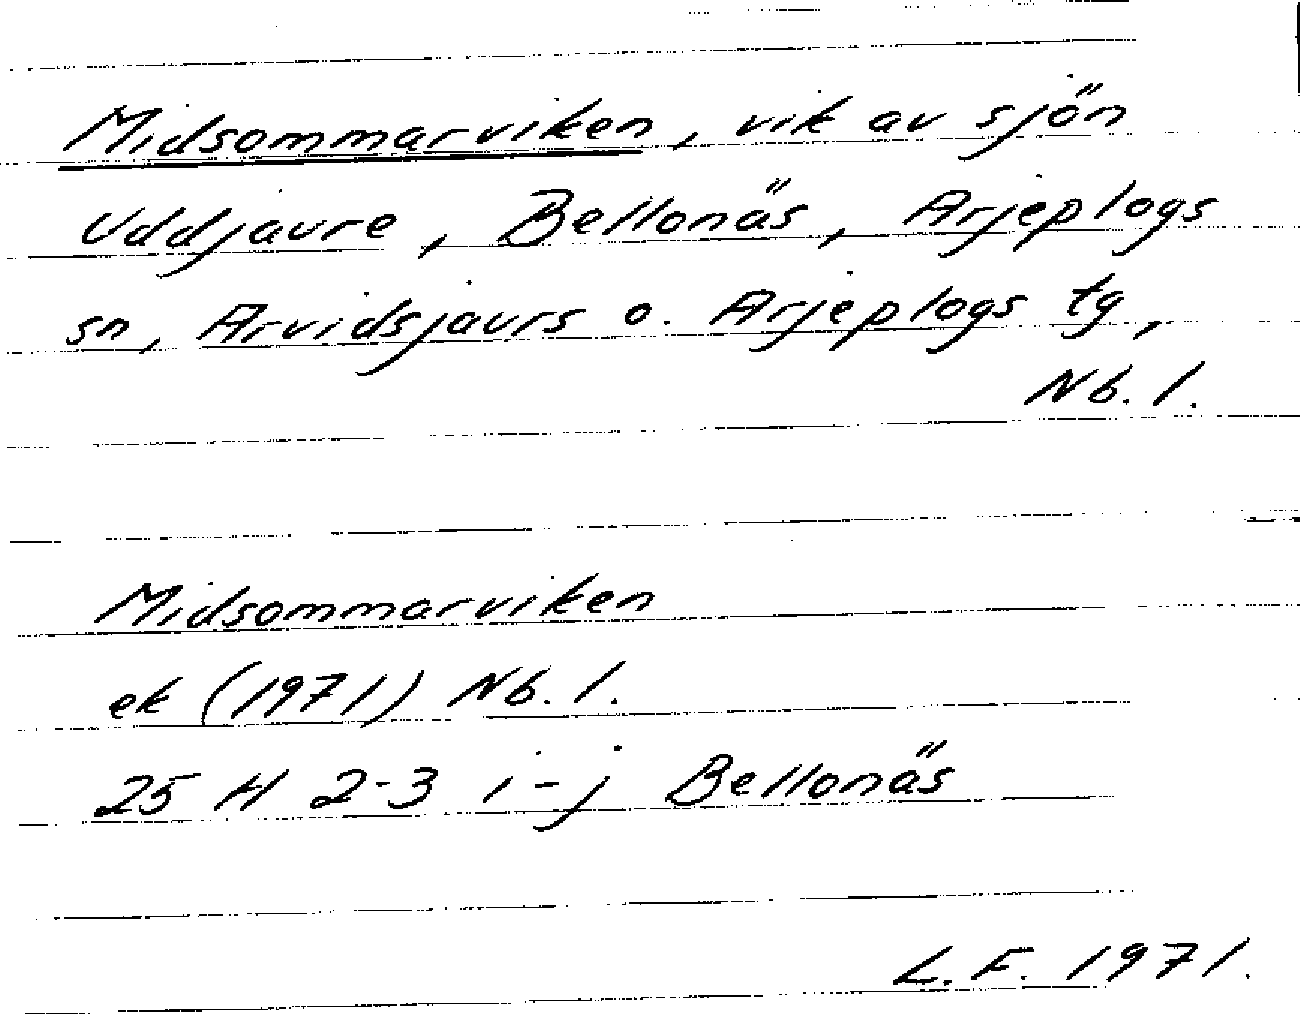 Midsommarviken, vik av sjön
Uddjaure, Bellonäs, Arjeplogs
sn, Arvidsjaurs o. Arjeplogs tg,
Nb. l.
Midsommarviken
ek (1971) Nb. l.
25 H 2-3 i-j Bellonäs
L.F. 1971.